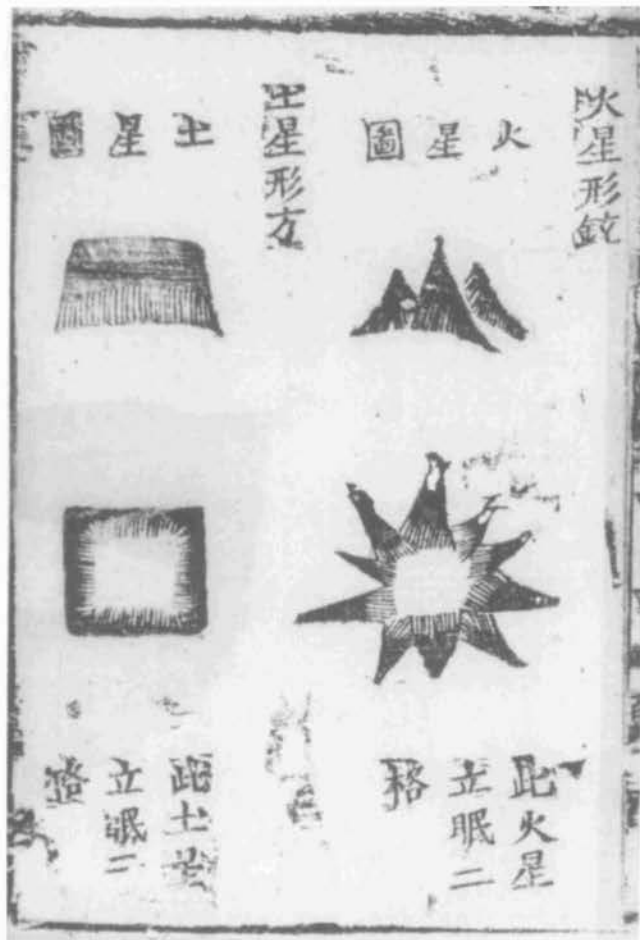 火星形銳
火星圖
此火星
立眠二
格
土星形方
土星圖
此土星
立眠二
格